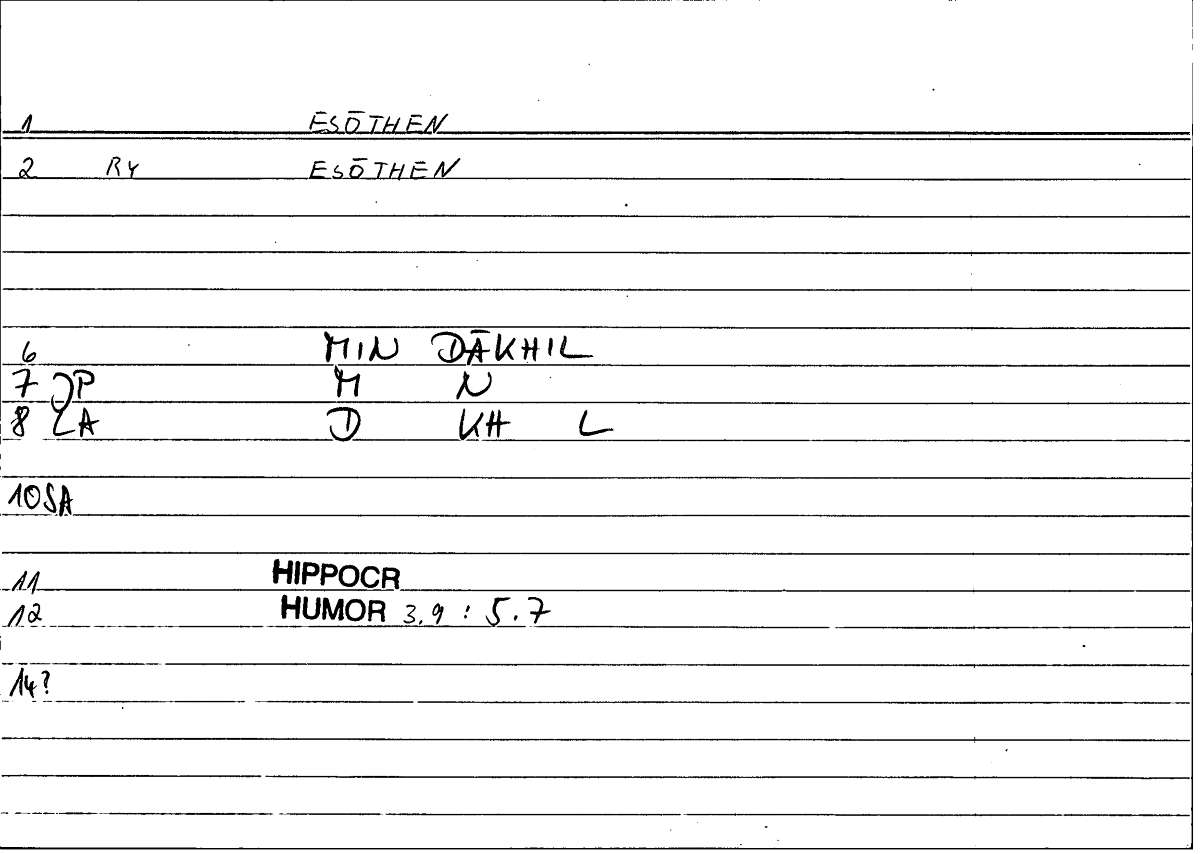 1 ESŌTHEN
2 RY ESŌTHEN
6 MIN DĀKHIL
7 JP M N
8 LA D KH L
10 SA
11 HIPPOCR
12 HUMOR 3.9 : 5.7
14?